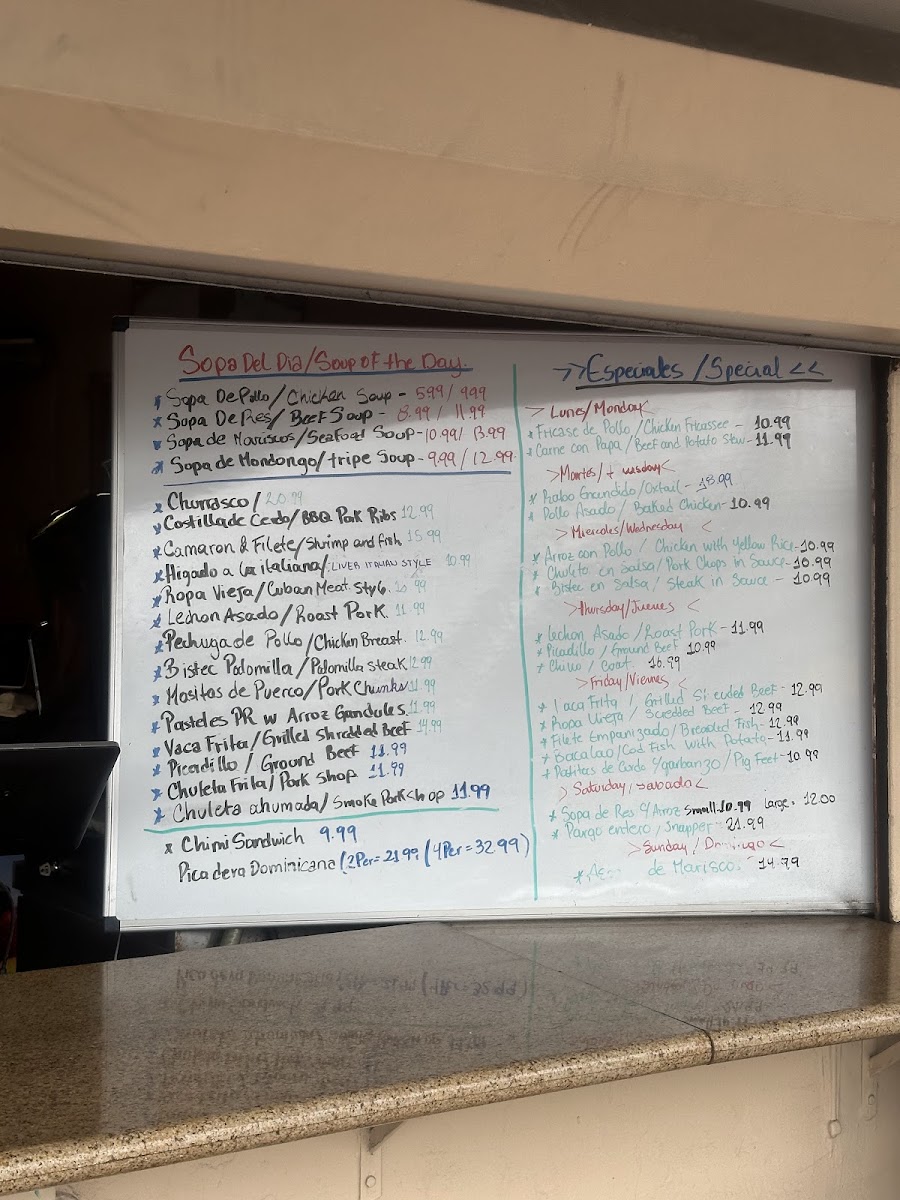 Sopa Del Dia/Soup of the Day
* Sopa De Pollo/Chicken Soup - 5.99/9.99
* Sopa De Res/Beef Soup - 8.99/11.99
* Sopa de Mariscos/Seafood Soup - 10.99/13.99
* Sopa de Mondongo/tripe Soup - 9.99/12.99
* Churrasco/20.99
* Costilla de Cerdo/BBQ Pork Ribs 12.99
* Camaron & Filete/Shrimp and fish 15.99
* Higado a la italiana/LIVER ITALIAN STYLE 10.99
* Ropa Vieja/Cuban Meat Style.
* Lechon Asado/Roast Pork. 11.99
* Pechuga de Pollo/Chicken Breast. 12.99
* Bistec Palomilla/Palomilla Steak 12.99
* Masitas de Puerco/Pork Chunks 11.99
* Pasteles PR w Arroz Gandules. 11.99
* Vaca Frita/Grilled Shredded Beef 14.99
* Picadillo/Ground Beef 11.99
* Chuleta Frita/Pork Shop 11.99
* Chuleta ahumada/Smoke Pork chop 11.99
* Chimi Sandwich 9.99
Picadera Dominicana (2Per=21.99 (4Per=32.99)
>>Especiales/Special<<
>Lunes/Monday<
* Fricase de Pollo/Chicken Fricassee - 10.99
* Carne con Papa/Beef and Potato Stew - 11.99
>Martes/Tuesday<
* Rabo Encendido/Oxtail - 18.99
* Pollo Asado/Baked Chicken - 10.99
>Miercoles/Wednesday<
* Arroz con Pollo/Chicken with Yellow Rice - 10.99
* Chuleta en Salsa/Pork Chops in Sauce - 10.99
* Bistec en Salsa/Steak in Sauce - 10.99
>Thursday/Jueves<
* Lechon Asado/Roast Pork - 11.99
* Picadillo/Ground Beef 10.99
* Chivo/Goat. 16.99
>Friday/Viernes<
* Vaca Frita/Grilled Shredded Beef - 12.99
* Ropa Vieja/Scredded Beef - 12.99
* Filete Empanizado/Breaded Fish - 12.99
* Bacalao/Cod Fish with Potato - 11.99
* Patitas de Cerdo y garbanzo/Pig Feet - 10.99
>Saturday/Sabado<
* Sopa de Res y Arroz Small 10.99 large. 12.00
* Pargo entero/Snapper - 21.99
>Sunday/Domingo<
* de Marisco. 14.99